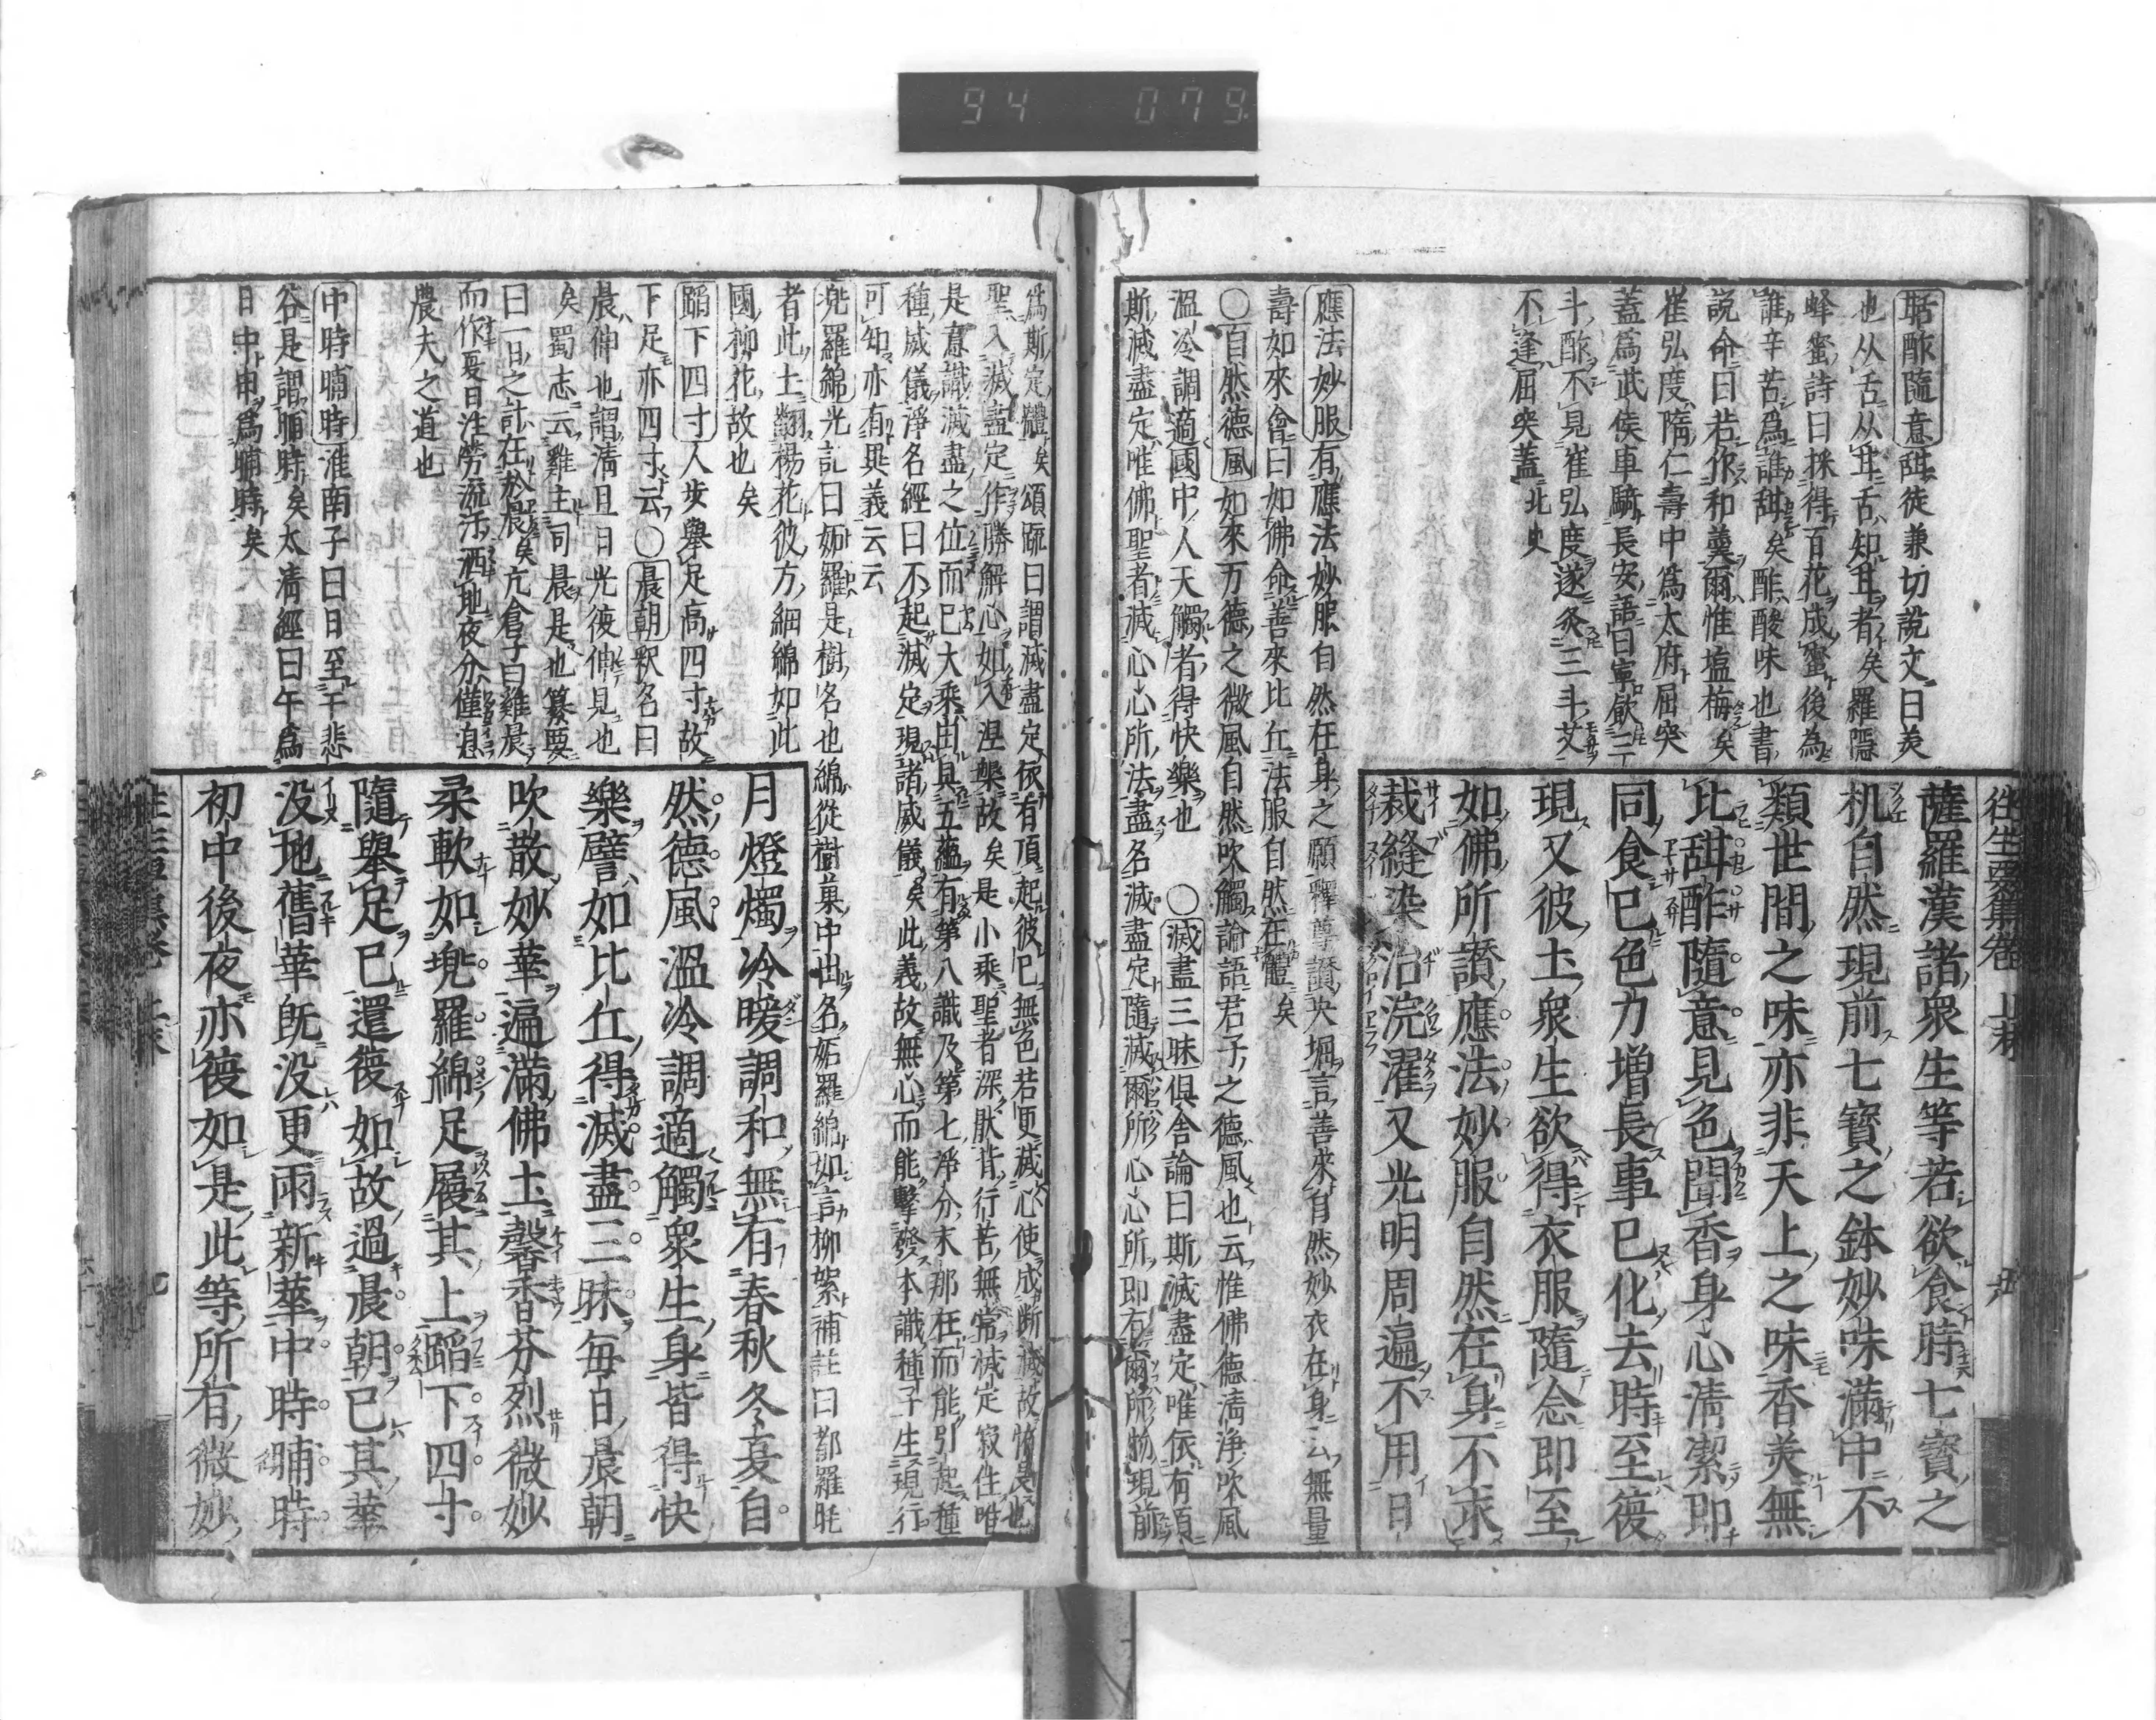 94 079
往生要集卷上末
甜酢隨意甜徒兼切說文曰美
也从舌从甘舌知甘者矣羅隱
蜂蜜詩曰採得百花成蜜後為
誰辛苦爲誰甜矣酢酸味也書
説命曰若作和羹爾惟塩梅矣
崔弘度隋仁壽中為太府屈突
蓋爲武侯車騎長安語曰寧飮三
斗酢不見崔弘度遂灸三斗艾
不逢屈突蓋北史
薩羅漢諸衆生等若欲食時七寳之
机自然現前七寳之鉢妙味滿中不
類世間之味亦非天上之味香美無
比甜酢隨意見色聞香身心清潔即
同食已色力増長事已化去時至復
現又彼土衆生欲得衣服隨念即至
如佛所讃應法妙服自然在身不求
裁縫染治浣濯又光明周遍不用日
應法妙服有應法妙服自然在身之願釋尊讃央堀言善來自然妙衣在身云無量
壽如來會曰如佛命善來比丘法服自然在體矣
〇自然德風如來万德之微風自然吹觸論語君子之德風也云惟佛德清浄吹風
溫冷調適國中人天觸者得快樂也　〇滅盡三昧俱舍論曰斯滅盡定唯依有頂
斯滅盡定唯佛聖者滅心心所法盡名滅盡定隨滅爾所心心所即有爾所物現前
爲斯定體矣頌䟽曰謂滅盡定依有頂起彼已無色若更滅心使成断滅故怖畏也
聖入滅盡定作勝解心如入涅槃故矣是小乘聖者深猒背行苦無常滅定寂住唯
是意識滅盡之位而已大乘由具五蘊有第八識及第七淨分末那在而能引起種
種威儀淨名經曰不起滅定現諸威儀矣此義故無心而能擊發本識種子生現行
可知亦有異義云云
兠羅綿光記曰妬羅是樹名也綿從樹菓中出名妬羅綿如言柳絮補註曰都羅毦
者此土翻楊花彼方細綿如此
國柳花故也矣
蹈下四寸人步舉足高四寸故
下足亦四寸云〇晨朝釈名曰
晨伸也謂清旦日光復伸見也
矣蜀志云雞主司晨是也纂要
曰一日之計在於晨矣亢倉子曰雞晨
而作夏日注勞流汗洒地夜分僅息
農夫之道也
中時晡時淮南子曰日至于悲
谷是謂晡時矣太清經曰午爲
日中申爲晡時矣
月燈燭冷暖調和無有春秋冬夏自
然德風溫冷調適觸衆生身皆得快
樂譬如比丘得滅盡三昧毎日晨朝
吹散妙華遍滿佛土馨香芬烈微妙
柔軟如兠羅綿足履其上蹈下四寸
隨舉足已還復如故過晨朝已其華
没地舊華既没更雨新華中時晡時
初中後夜亦復如是此等所有微妙